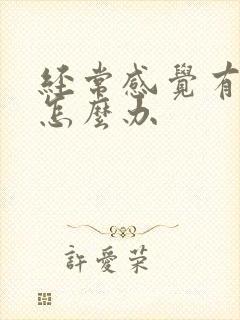 經常感覺有
怎麼办
許愛荣